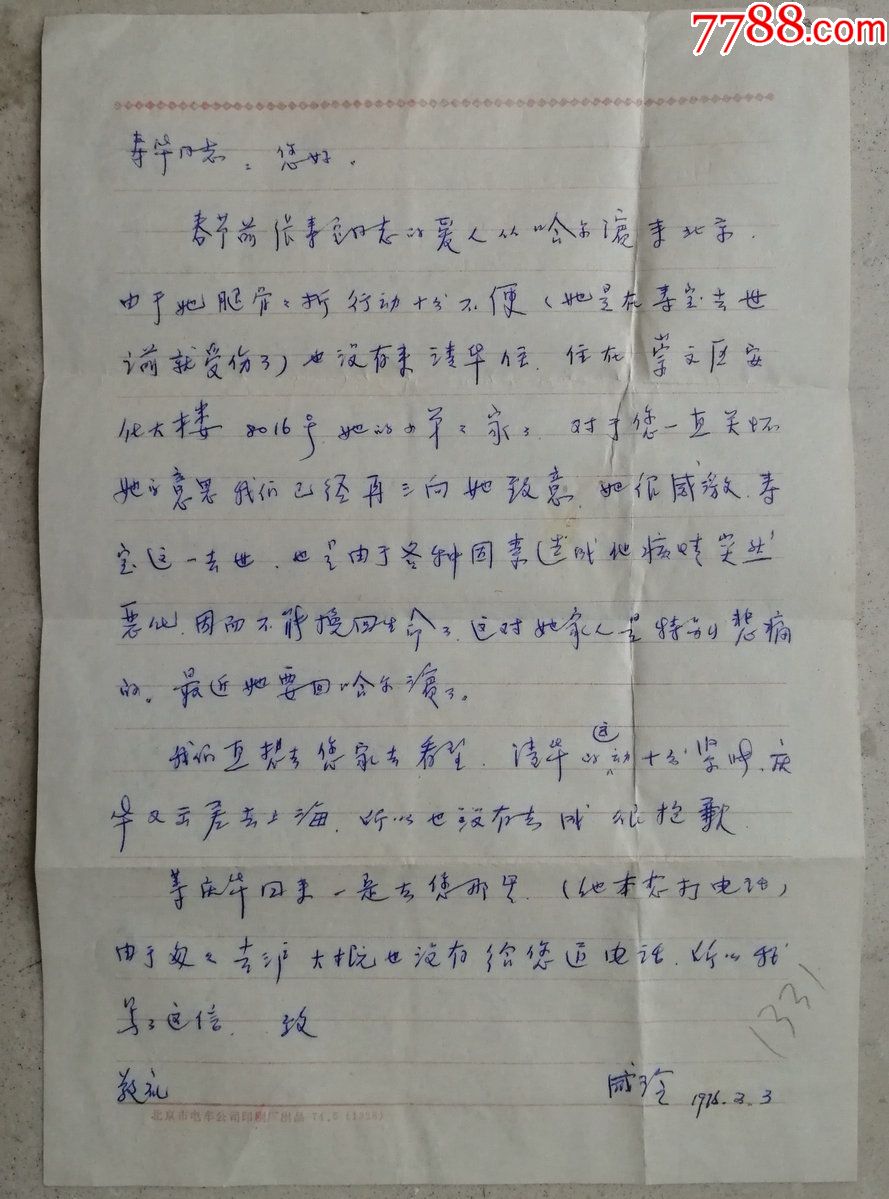 7788.com
寿华同志：您好。
春节前张寿宝同志的爱人从哈尔滨来北京.
由于她腿骨骨折行动十分不便（她是在寿宝去世
前就受伤了）也没有来清华住. 住在崇文区安
化大楼8016号她的小弟弟家了. 对于您一直关怀
她的意思我们已经再三向她致意, 她很感激. 寿
宝这一去世, 也是由于各种因素造成他病情突然
恶化, 因而不能挽回生命了. 这对她家人是特别悲痛
的. 最近她要回哈尔滨了。
我们直想去您家去看望. 清华的这动十分紧, 庆
华又出差去上海, 所以也没有去成很抱歉.
等庆华回来一定去您那里. （他本想打电话）
由于匆匆去沪大概也没有给您通电话. 所以我
写了这信. 致
敬礼
玲 1976.3.3
1331
北京市电车公司印刷厂出品 74.5 (1338)